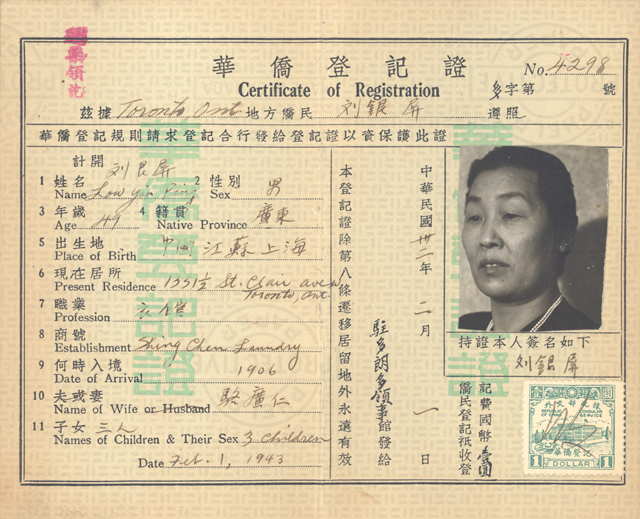 華僑登記證
Certificate of Registration
No. 4298
多字第 號
茲據 Toronto, Ont 地方僑民 刘銀屏 遵照
華僑登記規則請求登記合行發給登記證以資保護此證
計開
1 姓名 刘艮屏
Name Low Yin Ping
2 性別 男
Sex
3 年歲
Age 49
4 籍貫 廣東
Native Province
5 出生地 中國 江蘇上海
Place of Birth
6 現在居所
Present Residence 1351½ St. Clair ave W
Toronto, Ont.
7 職業
Profession
8 商號
Establishment Shing Chen Laundry
9 何時入境
Date of Arrival 1906
10 夫或妻 駱廣仁
Name of Wife or Husband
11 子女 三人
Names of Children & Their Sex 3 children
Date Feb. 1, 1943
本登記證除第八條遷移居留地外永遠有效
中華民國卅二年二月一日
駐多朗多領事館發給
持證本人簽名如下
刘銀屏
僑民登記祇收登
記費國幣壹圓
CONSULAR
SERVICE
華僑登記
1 DOLLAR 1